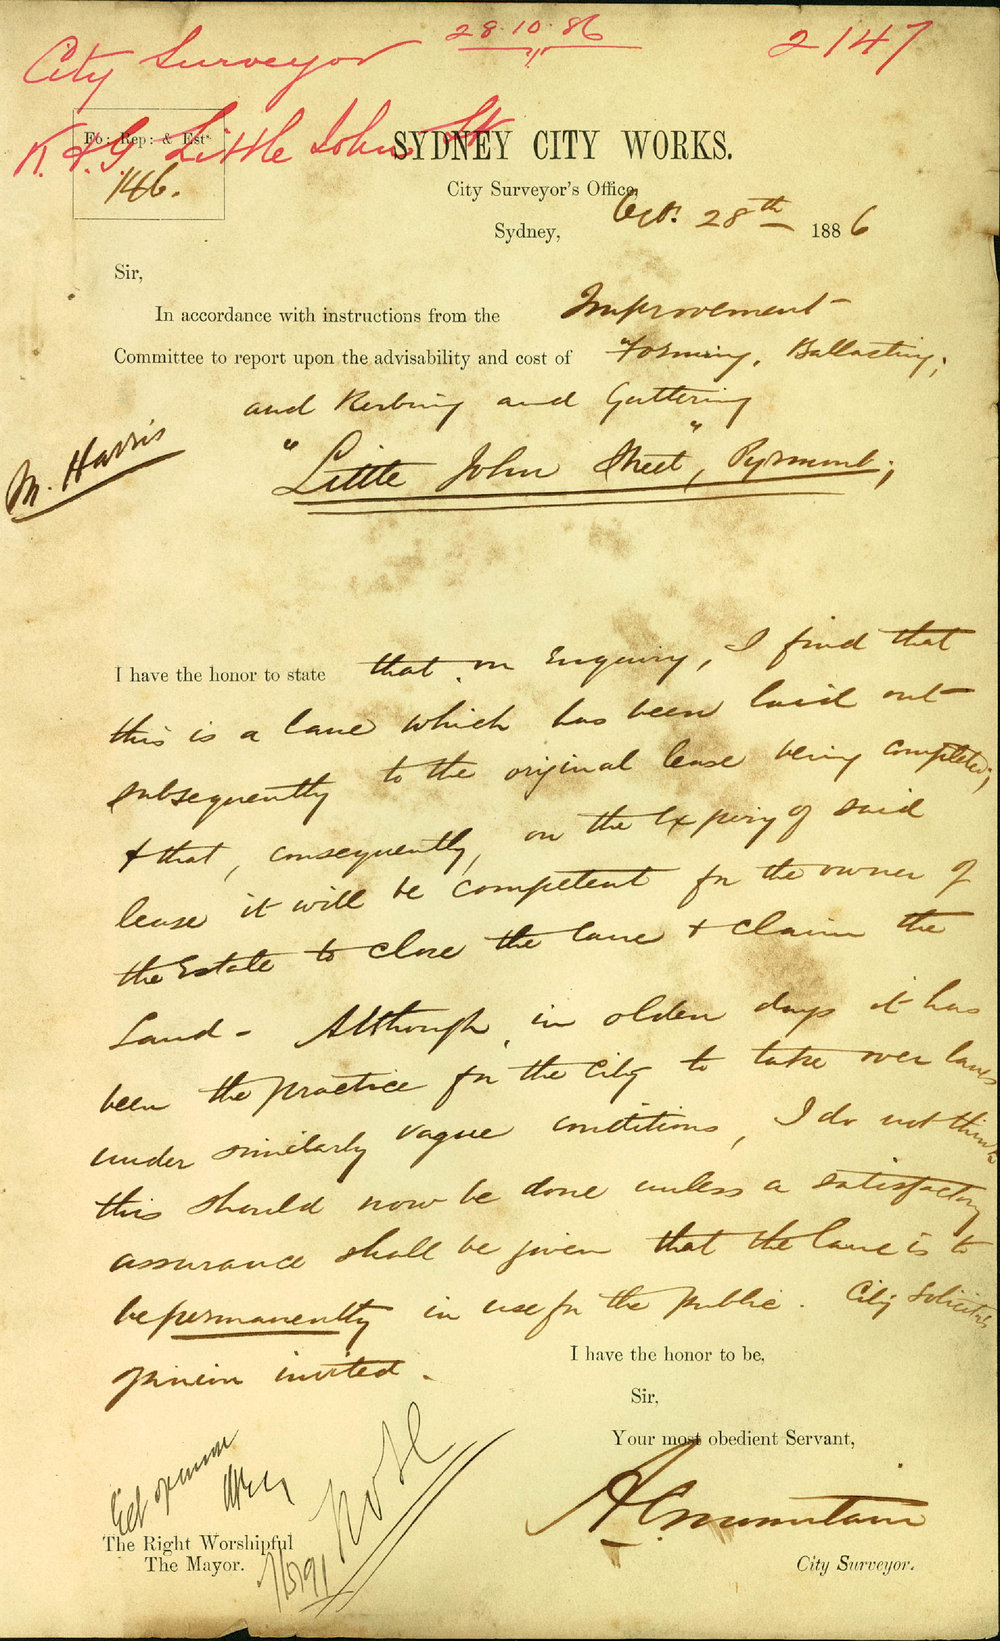 28.10.86
City Surveyor
2147
K. & G. Little John St
Fo: Rep: & Est.
146.
SYDNEY CITY WORKS.
City Surveyor's Office,
Sydney, Oct. 28th 1886
Sir,
In accordance with instructions from the Improvement
Committee to report upon the advisability and cost of "Forming, Ballasting,
and Kerbing and Guttering
M. Harris
"Little John Street", Pyrmont;
I have the honor to state that on enquiry, I find that
this is a lane which has been laid out
subsequently to the original lease being completed;
& that, consequently, on the expiry of said
lease it will be competent for the owner of
the Estate to close the lane & claim the
Land - Although in olden days it has
been the practice for the City to take over lanes
under similarly vague conditions, I do not think
this should now be done unless a satisfactory
assurance shall be given that the lane is to
be permanently in use for the public. City Solicitor's
opinion invited.
I have the honor to be,
Sir,
Your most obedient Servant,
Get opinion
The Right Worshipful
The Mayor.
City Surveyor.